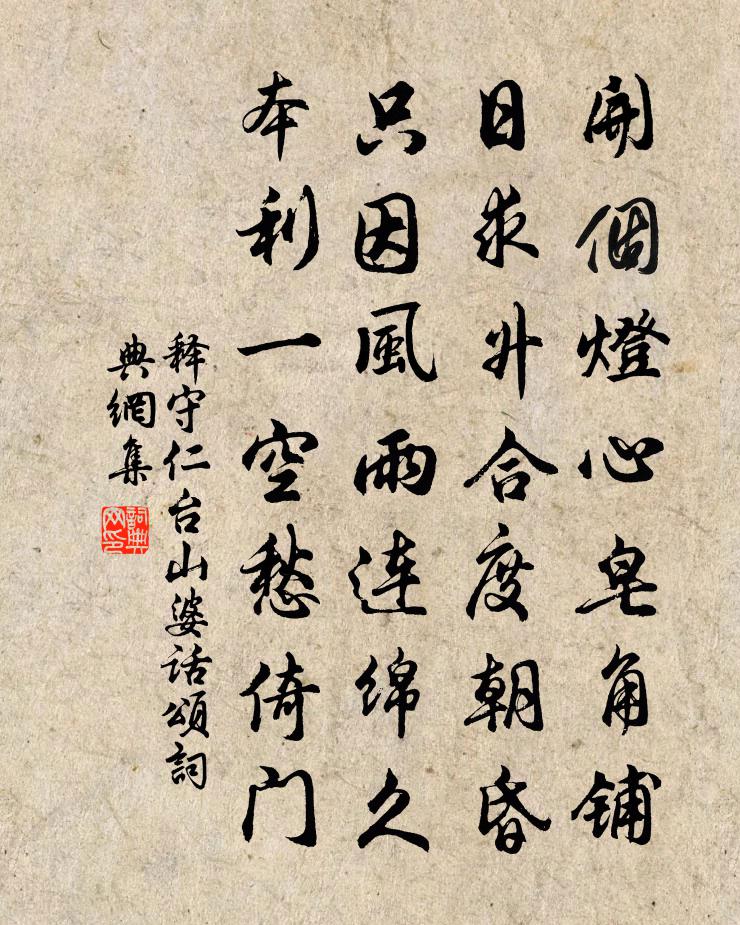 開個燈心皂角铺
日求升合度朝昏
只因風雨连绵久
本利一空愁倚门
释守仁台山婆话頌詞
典網集
詞典
网印